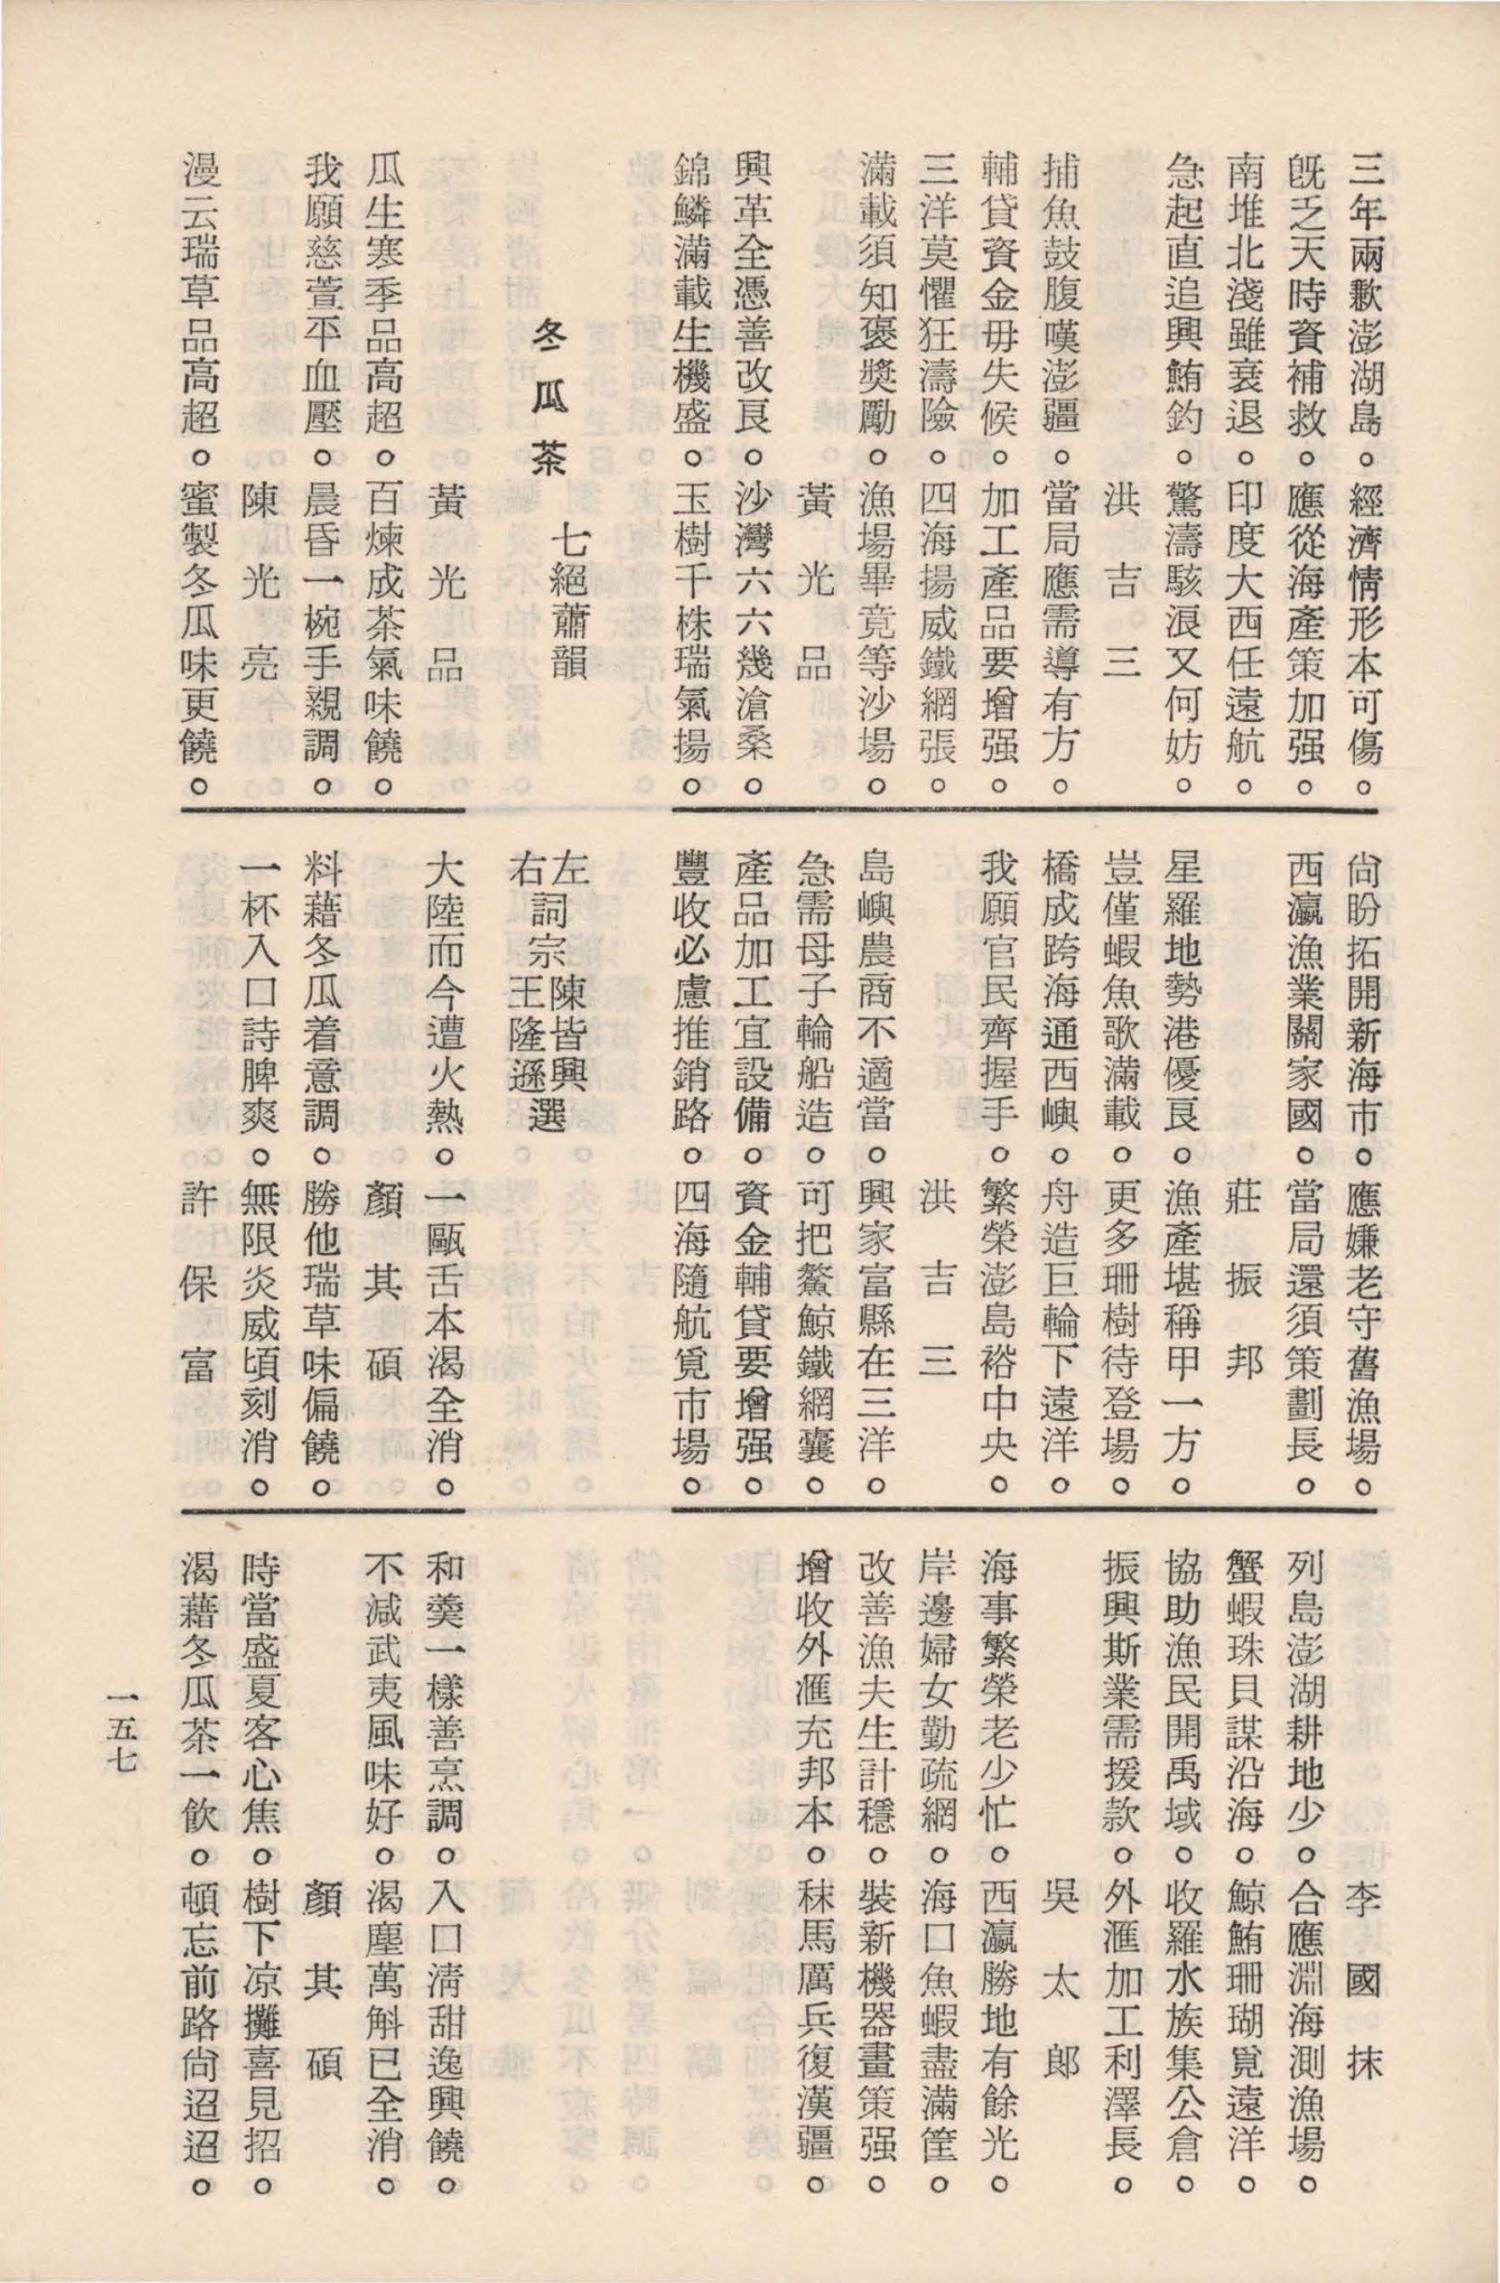 三年兩歉澎湖島。經濟情形本可傷。
旣乏天時資補救。應從海產策加强。
南堆北淺雖衰退。印度大西任遠航。
急起直追興鮪釣。驚濤駭浪又何妨。
洪吉三
捕魚鼓腹嘆澎疆。當局應需導有方。
輔貸資金毋失候。加工產品要增强。
三洋莫懼狂濤險。四海揚威鐵網張。
滿載須知褒獎勵。漁場畢竟等沙場。
黃光品
興革全憑善改良。沙灣六六幾滄桑。
錦鱗滿載生機盛。玉樹千株瑞氣揚。
尙盼拓開新海市。應嫌老守舊漁場。
西瀛漁業關家國。當局還須策劃長。
莊振邦
星羅地勢港優良。漁產堪稱甲一方。
豈僅蝦魚歌滿載。更多珊樹待登場。
橋成跨海通西嶼。舟造巨輪下遠洋。
我願官民齊握手。繁榮澎島裕中央。
洪吉三
島嶼農商不適當。興家富縣在三洋。
急需母子輪船造。可把鰲鯨鐵網囊。
產品加工宜設備。資金輔貸要增强。
豐收必慮推銷路。四海隨航覓市場。
李國抹
列島澎湖耕地少。合應淵海測漁場。
蟹蝦珠貝謀沿海。鯨鮪珊瑚覓遠洋。
協助漁民開禹域。收羅水族集公倉。
振興斯業需援款。外滙加工利澤長。
吳太郎
海事繁榮老少忙。西瀛勝地有餘光。
岸邊婦女勤疏網。海口魚蝦盡滿筐。
改善漁夫生計穩。裝新機器畫策强。
增收外滙充邦本。秣馬厲兵復漢疆。
冬瓜茶　七絕蕭韻
左詞宗陳皆興選
右詞宗王隆遜選
黃光品
瓜生寒季品高超。百煉成茶氣味饒。
我願慈萱平血壓。晨昏一椀手親調。
陳光亮
漫云瑞草品高超。蜜製冬瓜味更饒。
大陸而今遭火熱。一甌舌本渴全消。
顏其碩
料藉冬瓜着意調。勝他瑞草味偏饒。
一杯入口詩脾爽。無限炎威頃刻消。
許保富
和羹一樣善烹調。入口淸甜逸興饒。
不減武夷風味好。渴塵萬斛已全消。
顏其碩
時當盛夏客心焦。樹下凉攤喜見招。
渴藉冬瓜茶一飮。頓忘前路尙迢迢。
一五七